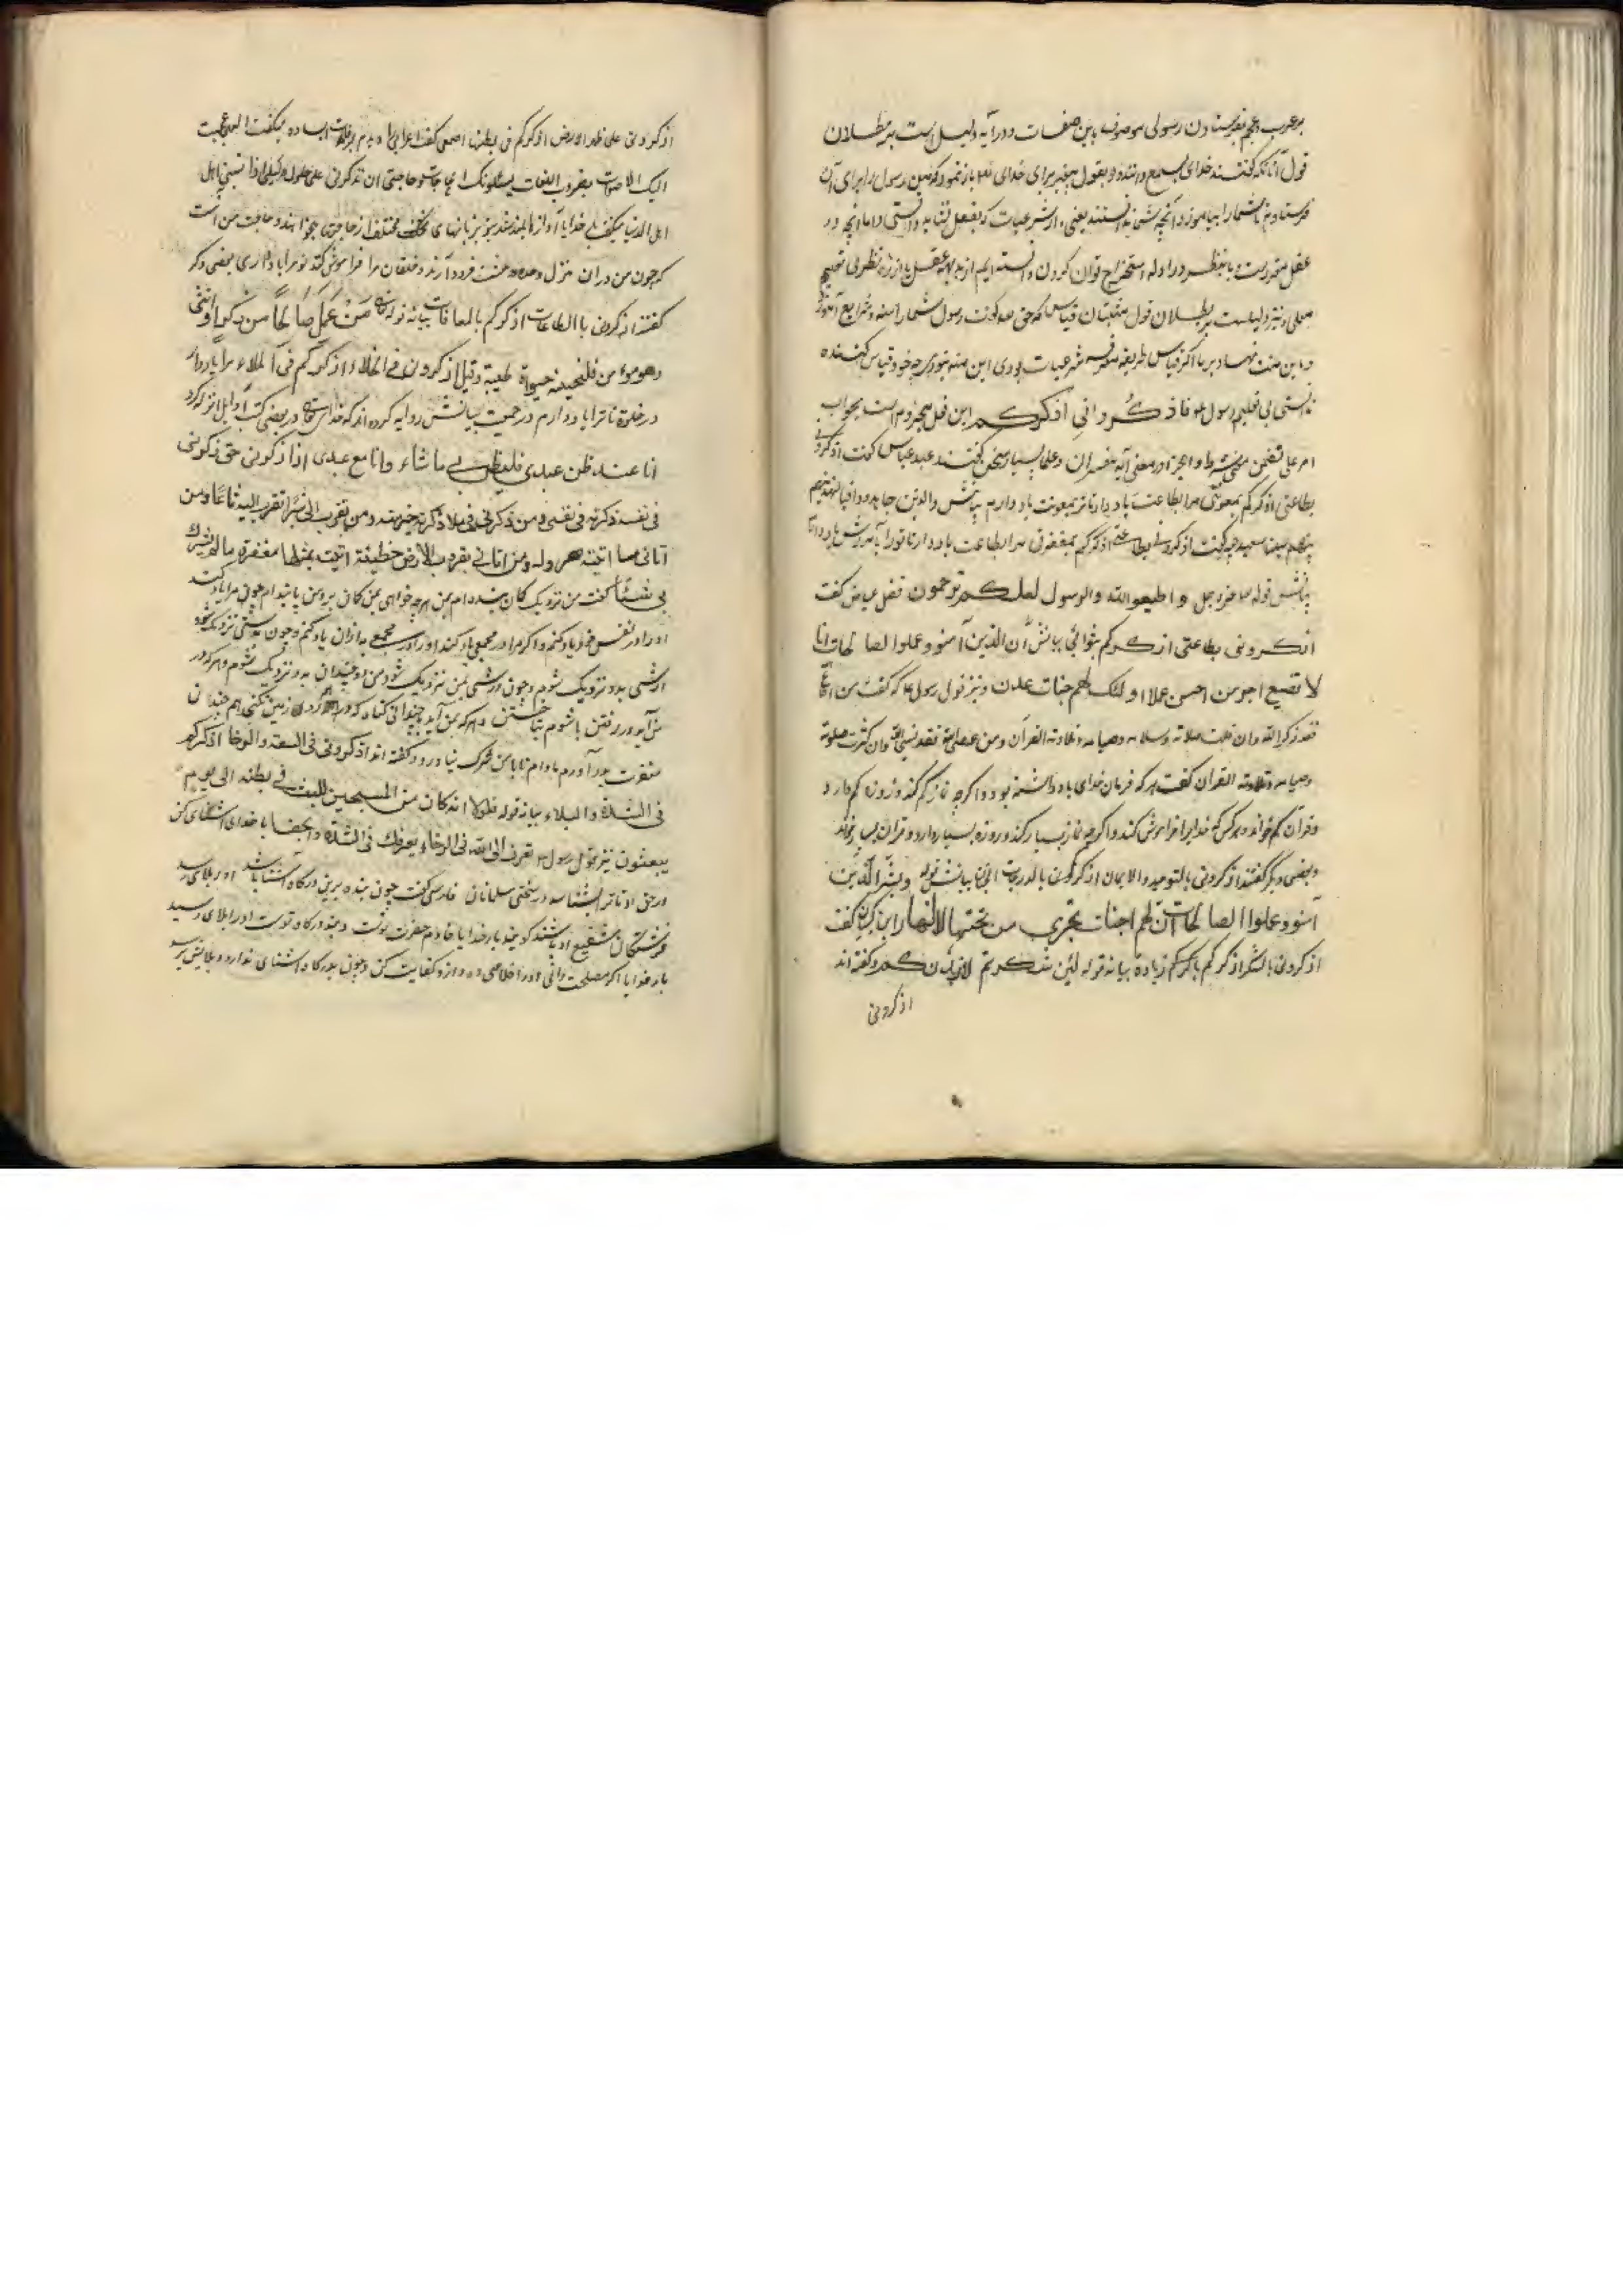 بر عرب و عجم بفرستادن رسولی موصوف باین صفات و درآیه دلیل است بر بطلان
قول آنانکه گفتند خدای بسمع داننده و بقول پیغمبر برای خدای بازنمود که من رسول را برای آن
فرستادم تا شما را بیاموزد آنچه شما ندانستند یعنی از شرعیات که بعقل نشاید دانستی و اما آنچه در
عقل مقررست و یا بنظر در ادله استخراج توان کردن دانسته ایم از بدیهه عقل یا از ره نظر بی تعلیم
معلمی و نیز دلیلست بر بطلان قول مثبتان قیاس که حق گفت رسول شما را سنه و شرایع آموزد
و باین منت نهاد بر ما اگر قیاس طریقه معرفت شرعیات بودی این منه نبودی چه خود قیاس کننده
بدانستی بی تعلیم رسول فاذکروانی اذکرکم این فعل مجزوم است بجواب
امر علی تضمن معنی شرط و اجزا در معنی آیه مفسران و علما بسیار سخن گفتند عبد عباس گفت اذکرونی
بطاعتی اذکرکم بمعونتی مرا بطاعت یاد دارید تا تر بمعونت یاد دارم بیانش والذین جاهدوا فینا لنهدینهم
سبلنا سعید جبیر گفت اذکرونی بطاعتی اذکرکم بمغفرتی مرا بطاعت یاد دار تا تو را بآمرزش یاد دارم
بیانش قوله عز وجل و اطیعوالله والرسول لعلکم ترحمون فضل عیاض گفت
اذکرونی بطاعتی اذکرکم بثوابی بیانش ان الذین آمنو و عملوا لصالحات انا
لا نضیع اجر من احسن عملا اولئک لهم جنات عدن و نیز قول رسول که گفت من اطاع الله
فقد ذکر الله وان قلت صلاته و صیامه و تلاوته القرآن و من عصی الله فقد نسی الله وان کثرت صلوته
و صیامه و تلاوته القران گفت هرکه فرمان خدای یاد داشته بود و اگرچه نماز کم کند و روزه کم دارد
و قرآن کم خواند و هرکس که خدایرا فراموش کند و اگرچه نماز بسیار کند و روزه بسیار دارد و قران بسیار خواند
و بعضی دیگر گفتند اذکرونی بالتوحید والایمان اذکرکم بالدرجات الجنان بیانش قوله وبشر الذین
آمنو و عملوا الصالحات ان لهم جنات تجری من تحتها الانهار ابن کیسان گفت
اذکرونی بالشکر اذکرکم زیادة بیانه قوله لئن شکرتم لازیدنکم و گفته اند
اذکرونی
اذکرونی علی ظهر الارض اذکرکم فی بطنها اصمعی گفت اعرابی را دیدم بعرفات ایستاده میگفت الهی عجت
الیک الاصوات بضروب اللغات یسئلونک الحاجات و حاجتی ان تذکرنی علی طول البلی اذا نسینی اهل
اهل الدنیا میگفت خدایا آوازها بلند شد بزبانهای مختلف از حاجتی میخواهند و حاجت من آنست
که چون من دران منزل وحده و وحشت فرود آرند و خلقان مرا فراموش کنند تو مرا یاد داری بعضی دگر
گفتند اذکرونی بالطاعات اذکرکم بالمعافات بیانه قوله من عمل صالحا من ذکر او انثی
وهو مومن فلنحیینه حیوة طیبة و قیل اذکرونی فی الخلاء اذکرکم فی الملاء مرا یاد دار
در خلوة تا ترا یاد دارم در جمعیت بیانش روایه کرده اند که خدای تعالی در بعضی کتب اوایل انزله کرد
انا عند ظن عبدی فلیظن بی ماشاء وانا مع عبدی اذا ذکرنی حتی ذکرنی
فی نفسه ذکرته فی نفسی ومن ذکرنی فی ملاء ذکرته خیر منه ومن تقرب الی شبرا تقربت الیه ذراعا ومن
اتانی مشیا اتیته هروله ومن اتانی بقراب الارض خطیئة اتیته بمثلها مغفرة ما لم یشرک
بی شیئا گفت من نزدیک گمان بنده ام بمن هرچه خواهی بمن گمان بر و من با بنده ام چون مرا یاد کند
او را در نفس خود یاد کنم و اگر مرا در مجمعی یاد کند او را در مجمع به ازان یاد کنم و چون بدستی نزدیک شود
ارشی بدو نزدیک شوم و چون ارشی بمن نزدیک شود من دو چندان بدو نزدیک شوم و هرکه در
من آید در رفتن باشوم بتاختن و هرکه بمن آید با چندانی گناه که در گردی زمین گنجی هم چندان
مغفرت بدو آورم مادام تا بمن شرک نیاورد و گفته اند اذکرونی فی السعة والرخا اذکرکم
فی الشدة والبلاء بیانه قوله فلولا انه کان من المسبحین للبث فی بطنه الی یوم
یبعثون نیز قول رسول تعرف الی الله فی الرخاء یعرفک فی الشدة با خدای اشنایی کن
در سختی سلمان فارسی گفت چون بنده برین درگاه اشنا باشد او را بلای رسد
فرشتگان شفیع او باشند گویند بار خدایا خادم حضرت توست و بنده درگاه توست او را بلای رسید
بار خدایا اگر مصلحت دانی او را خلاصی ده و ازو کفایت کن و چون بدرگاه اشنای ندارد و بلایش برسد